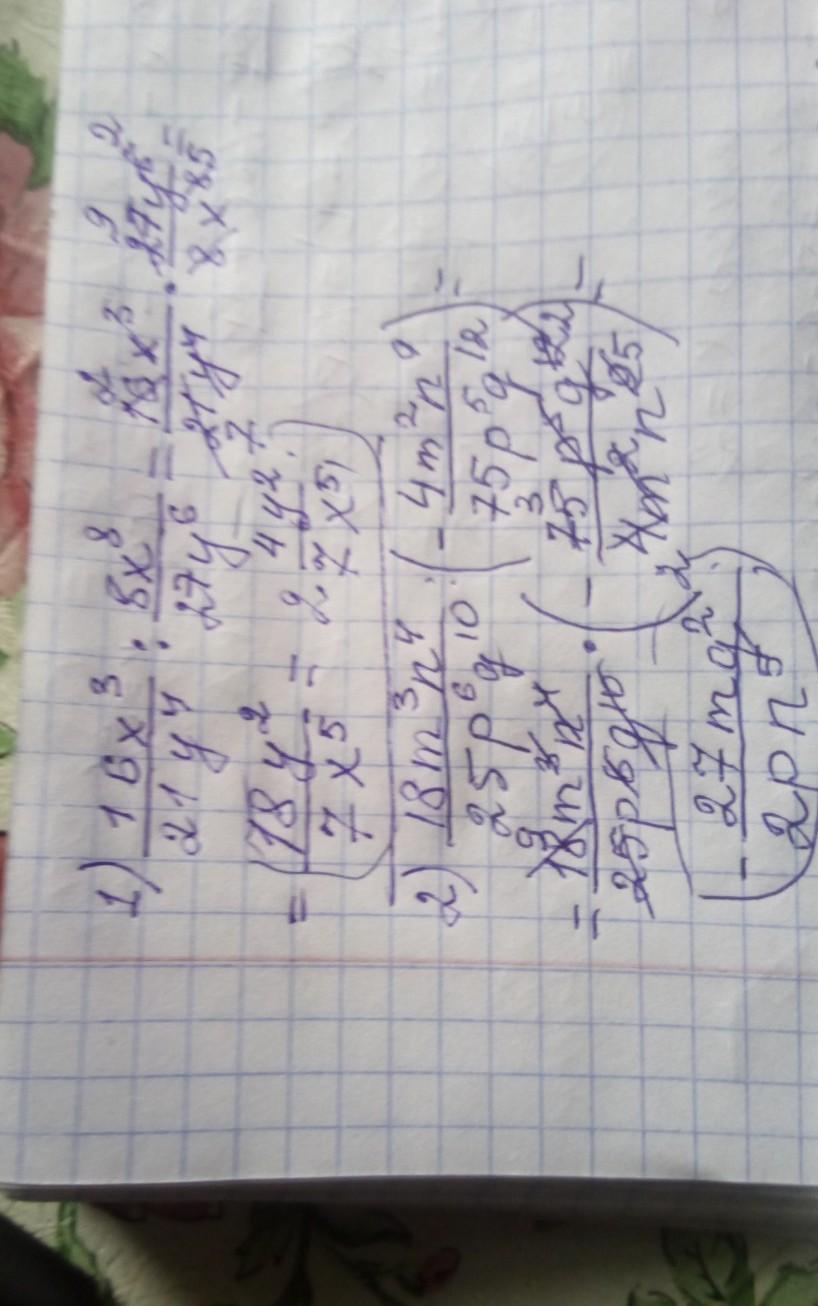 1) 16x³/21y⁴ : 8x⁸/27y⁶ = 16x³/21y⁴ · 27y⁶/8x⁸ =
= 18y²/7x⁵ = 2 4y²/7x⁵;
2) 18m³n⁴/25p⁶q¹⁰ : (- 4m²n⁹/75p⁵q¹²) =
= 18m³n⁴/25p⁶q¹⁰ · (- 75p⁵q¹²/4m²n⁹) =
- 27mq²/2pn⁵;